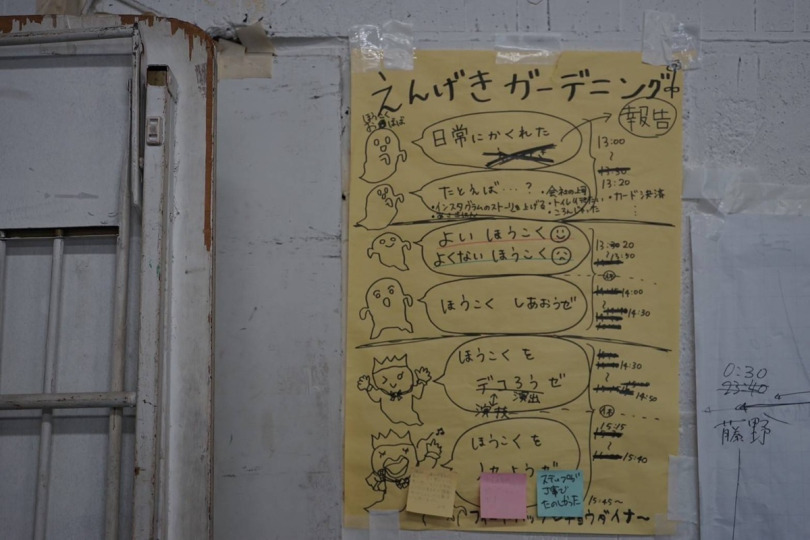 えんげきガーデニング
報告
日常にかくれた
13:00
13:20
たとえば…?
・会社の上司
・インスタグラムのストーリーを上げる
・トイレ
・カード決済
・ころんじゃった
よい ほうこく
よくない ほうこく
13:20
ほうこく しあおうぜ
14:00
14:30
ほうこく を
デコろうぜ
演出
演技
14:30
14:50
ほうこく を
15:15
15:40
スタッフが
丁寧で
たのしかった
15:45~
0:30
23:40
藤野